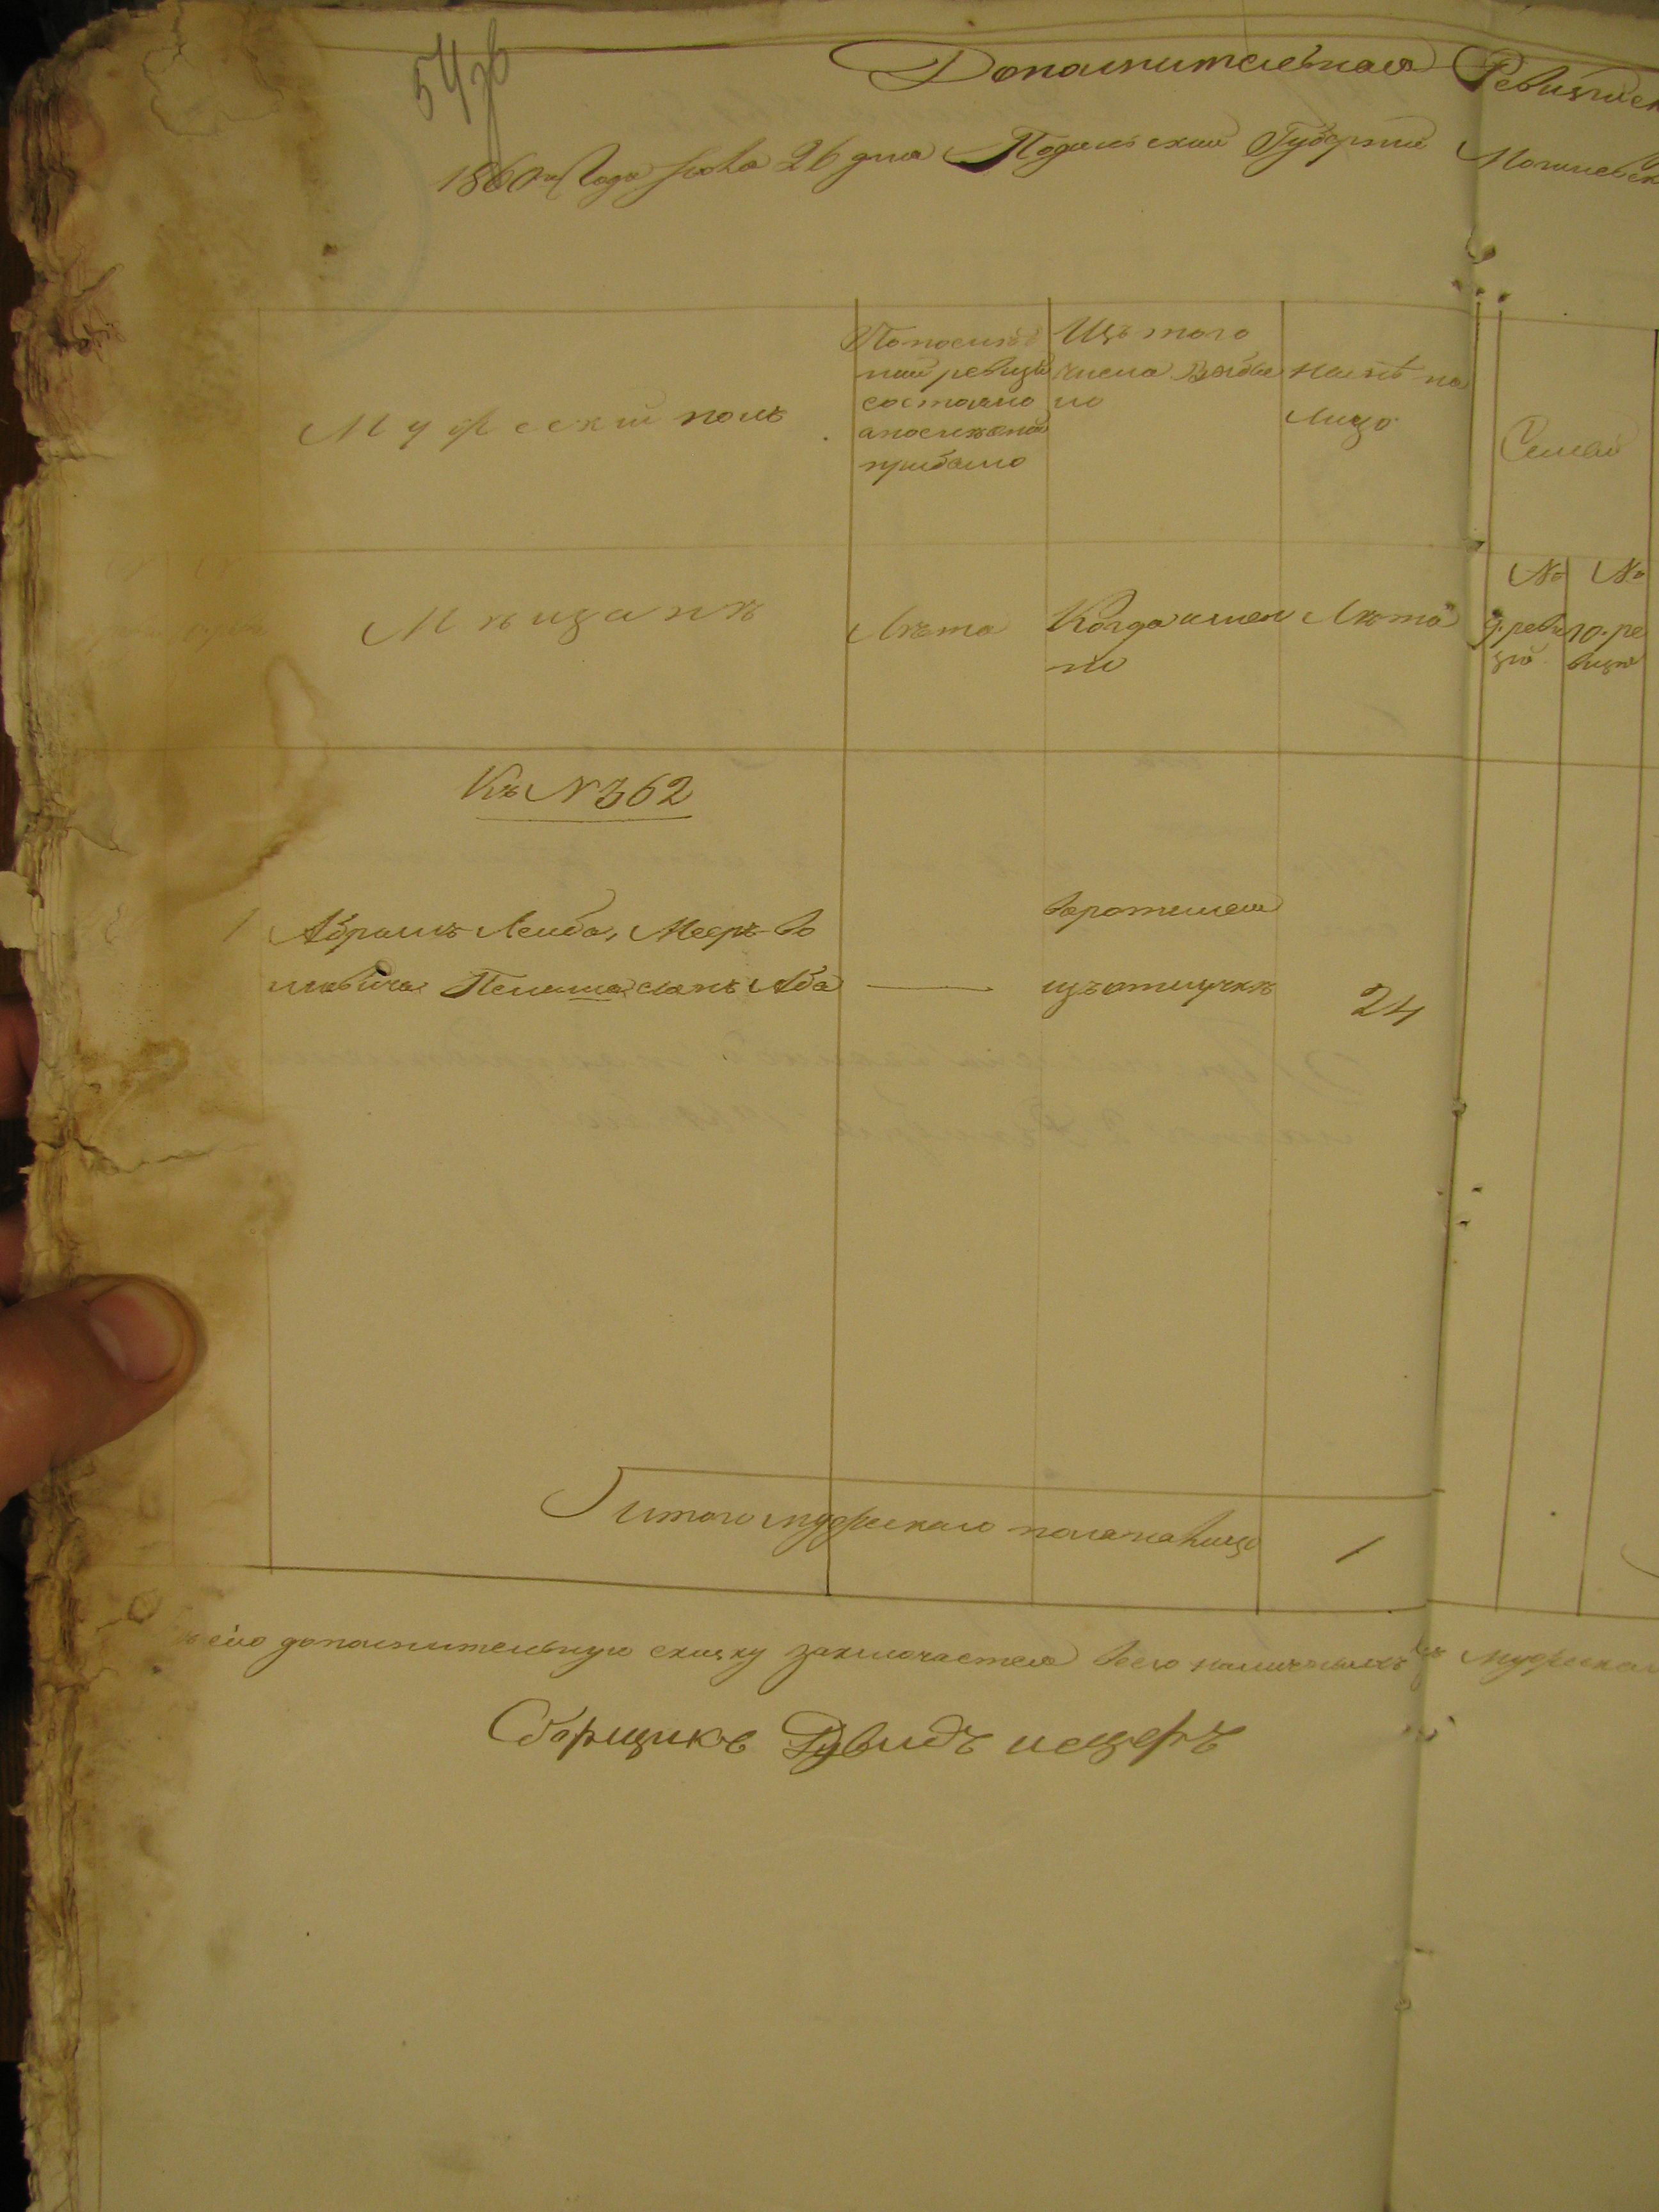 54 об
Дополнительная Ревизск
1860 Года Июля 26 дня Подольской Губернии Могилевск
Мужеский полъ
По послѣд
ней ревизіи
состояло
а послѣ оной
прибыло
Изъ того
числа выбы
ло
Нынѣ на
лицо
Семьи
Мѣщанъ
Лѣта
Когда имен
но
Лѣта
№
9. реви
зіи
№
10. ре
визіи
Къ № 362
1 Абрамъ Лейба, Мееръ-Во
сынъ Аба
воротился
изъ отлучки
24
Итого мужескаго пола на лицо 1
сію дополнительную сказку заключается всего наличныхъ мужскаго
Сборщикъ Дувидъ